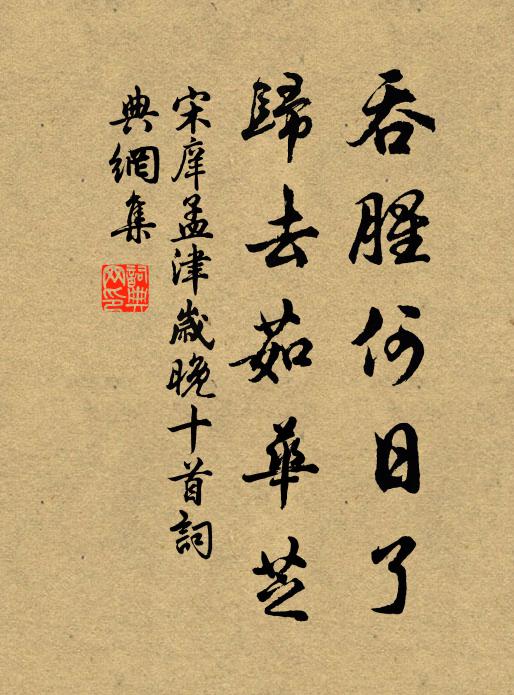 吞腥何日了
歸去茹華芝
宋庠孟津歲晚十首詞
典網集
詞典
网印